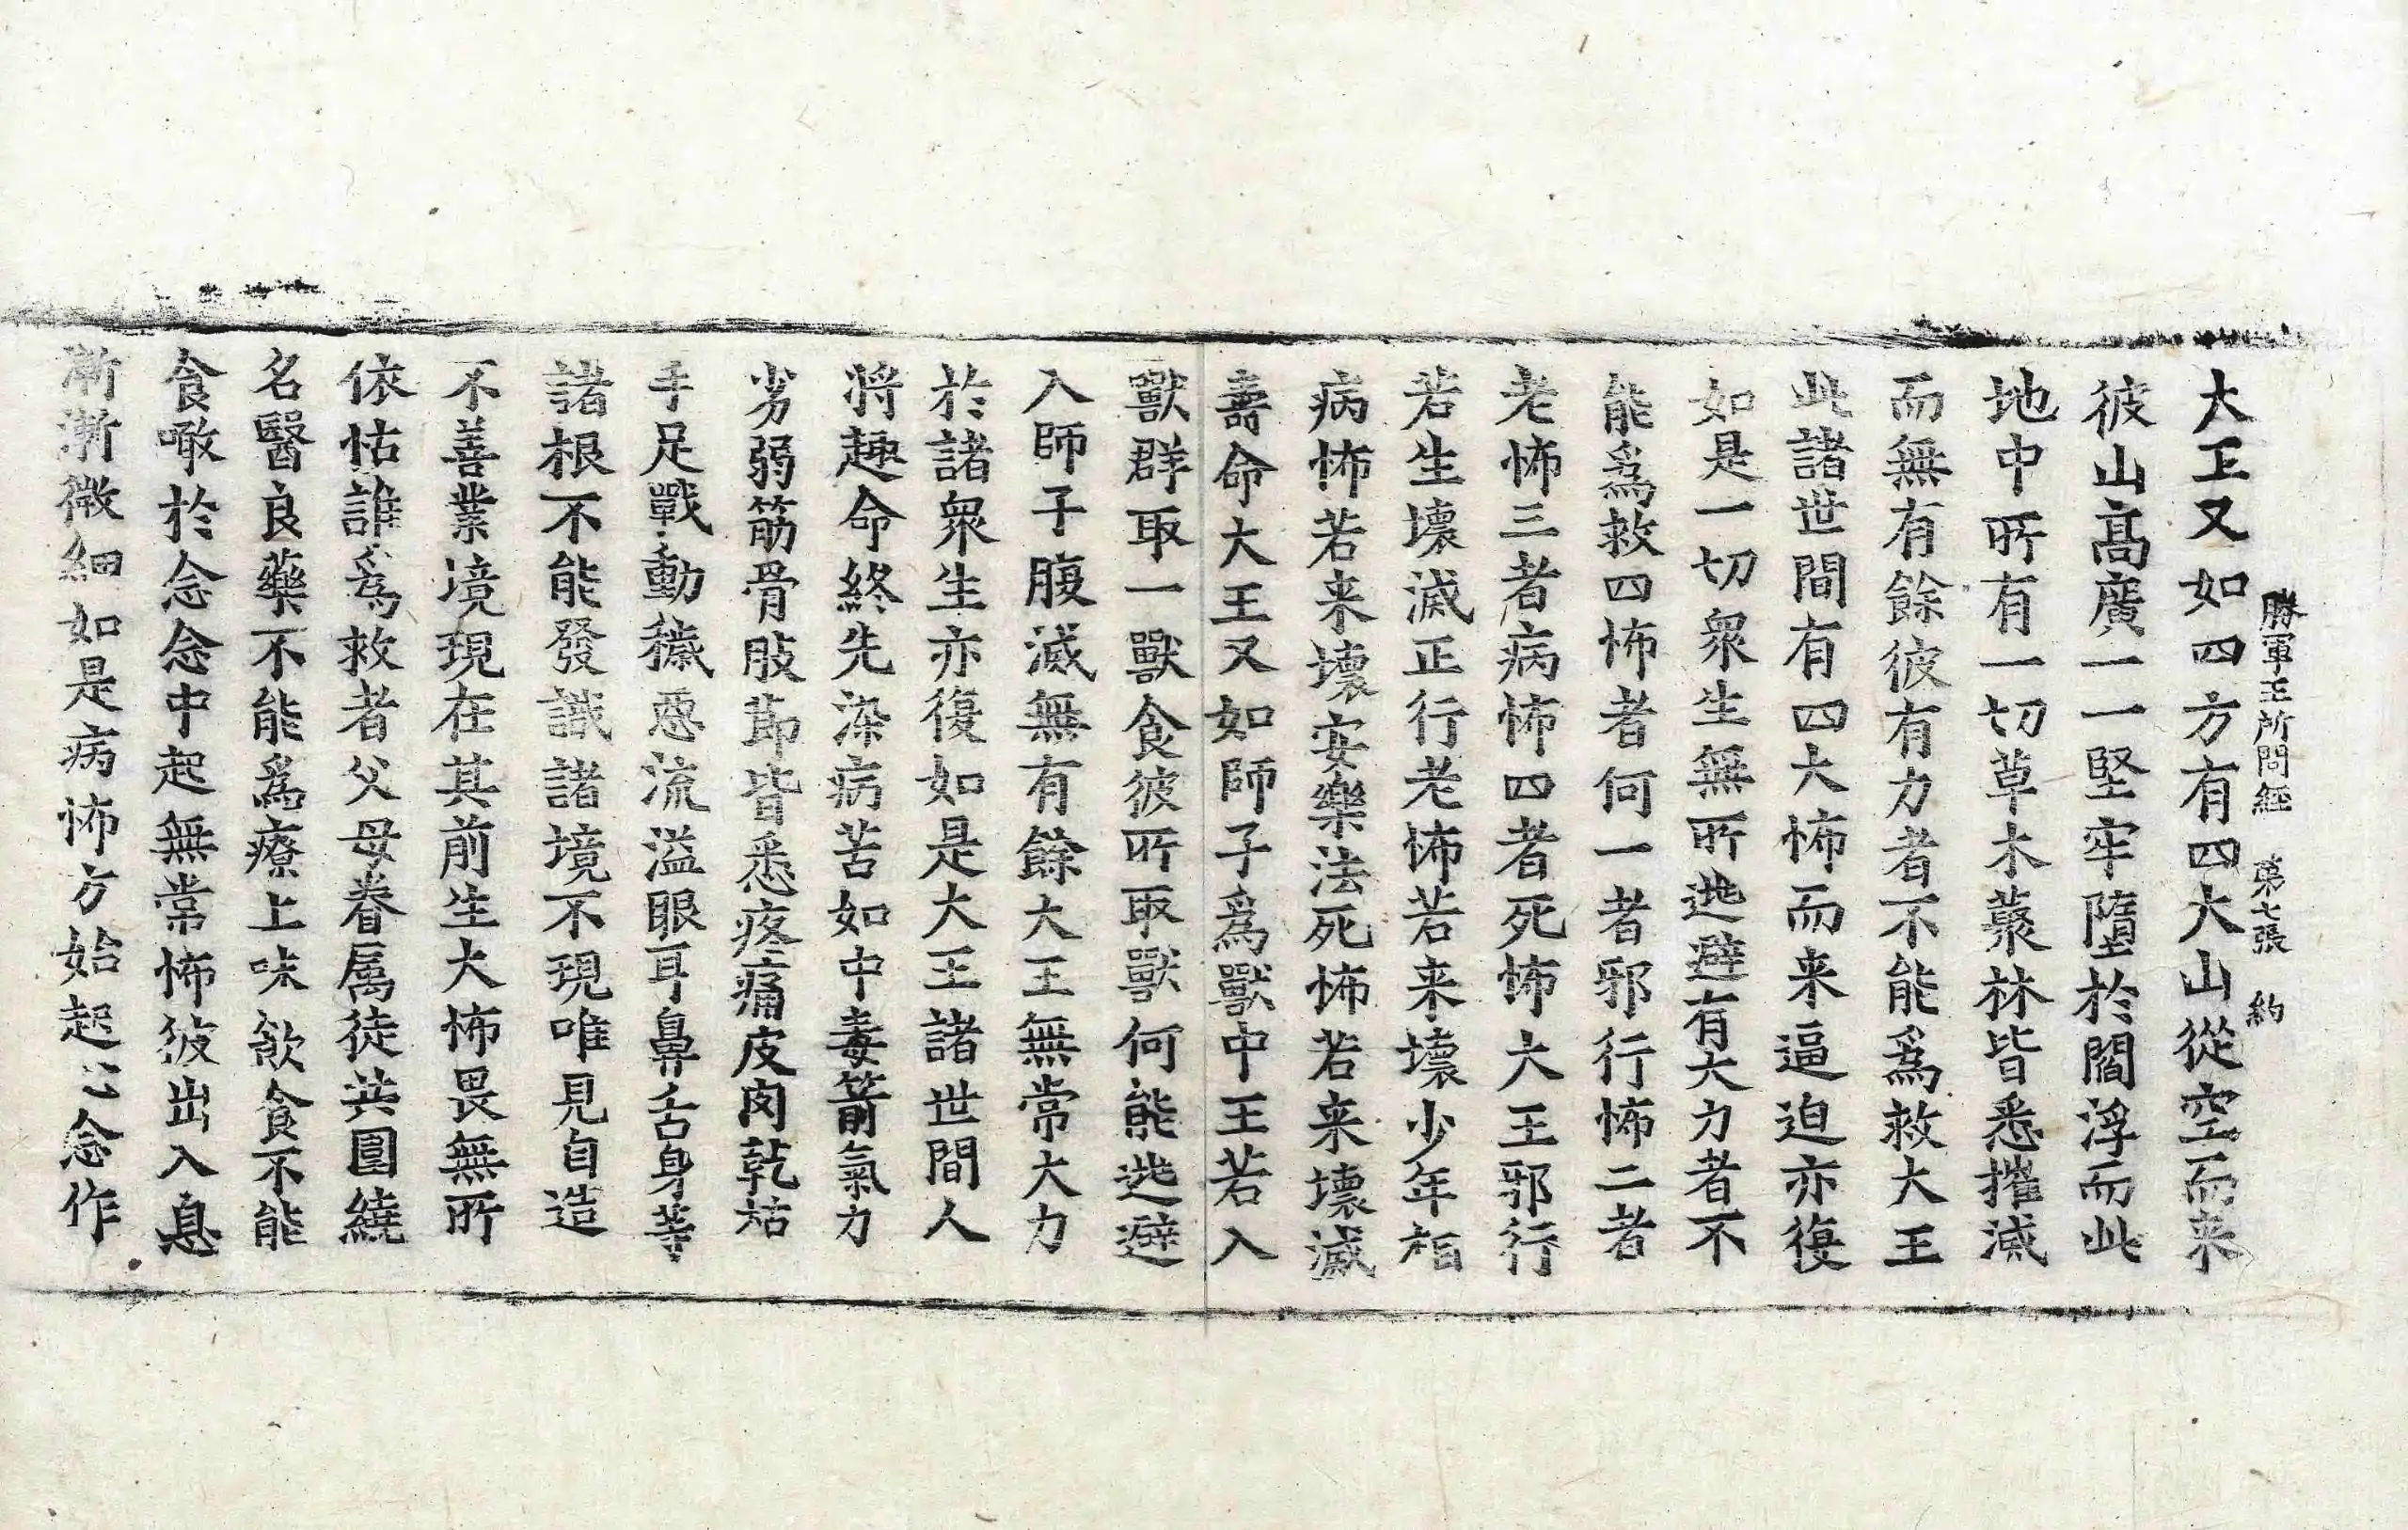 勝軍王所問經　第七張　約
大王又如四方有四大山從空而来
彼山髙廣一一堅牢墮於閻浮而此
地中所有一切草木藂林皆悉摧滅
而無有餘彼有力者不能爲救大王
此諸世間有四大怖而来逼迫亦復
如是一切衆生無所逃避有大力者不
能爲救四怖者何一者邪行怖二者
老怖三者病怖四者死怖大王邪行
若生壞滅正行老怖若来壞少年相
病怖若来壞安樂法死怖若来壞滅
壽命大王又如師子爲獸中王若入
獸群取一獸食彼所取獸何能逃避
入師子腹滅無有餘大王無常大力
於諸衆生亦復如是大王諸世間人
將趣命終先染病苦如中毒箭氣力
劣弱筋骨肢節皆悉疼痛皮肉乾枯
手足戰動穢惡流溢眼耳鼻舌身等
諸根不能發識諸境不現唯見自造
不善業境現在其前生大怖畏無所
依怙誰爲救者父母眷属徒共圍繞
名醫良藥不能爲療上味飲食不能
食噉於念念中起無常怖彼出入息
漸漸微細如是病怖方始起心念作